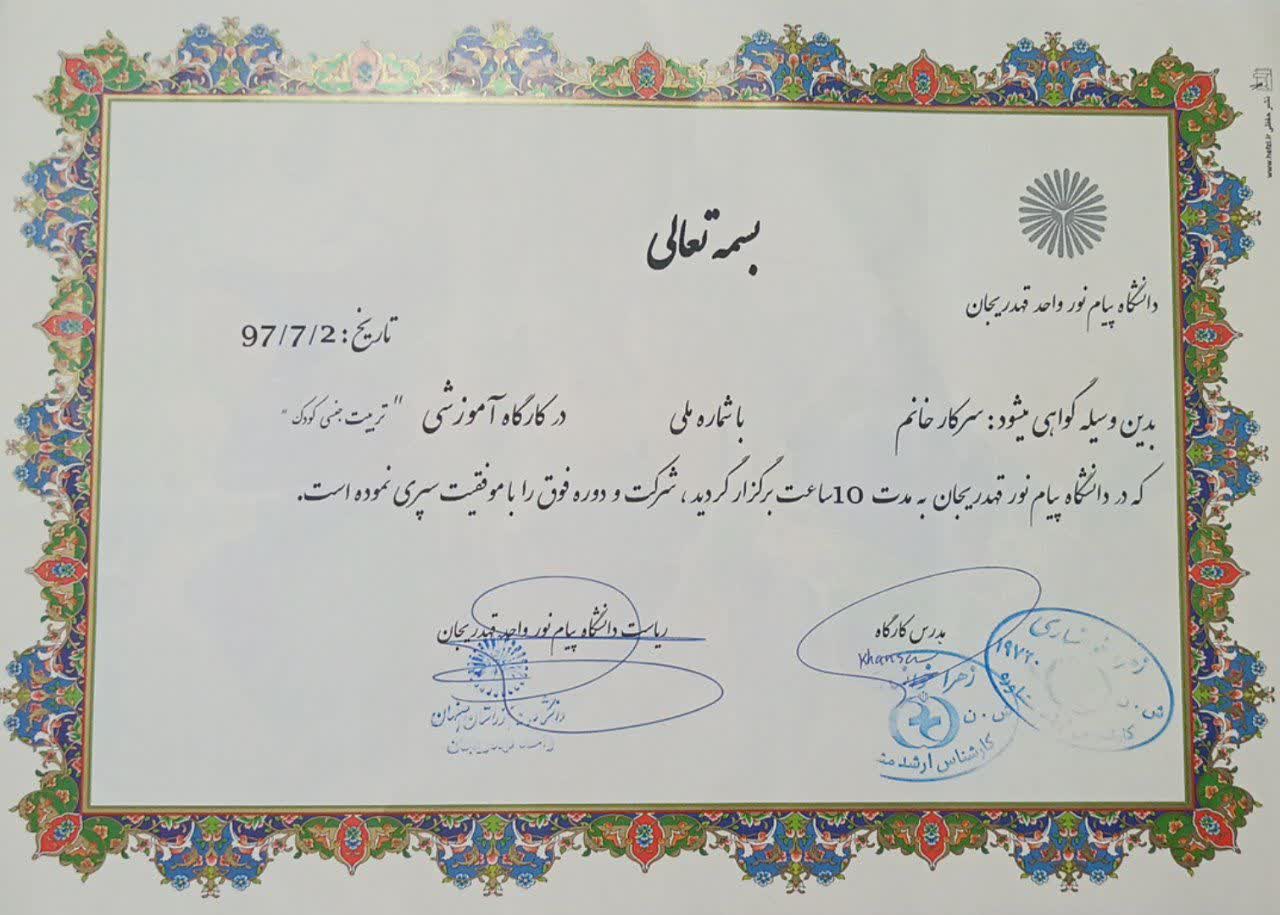 بسمه تعالی
دانشگاه پیام نور واحد قهدریجان
تاریخ: 97/7/2
بدین وسیله گواهی میشود: سرکار خانم با شماره ملی در کارگاه آموزشی " تربیت جنسی کودک "
که در دانشگاه پیام نور قهدریجان به مدت 10ساعت برگزار گردید، شرکت و دوره فوق را با موفقیت سپری نموده است.
مدرس کارگاه
ریاست دانشگاه پیام نور واحد قهدریجان
Khansa
زهرا
ش.ن
کارشناس ارشد
زهرا
۱۹۷۲۰
ش.ن
نشر حفظی www.hefzi.ir